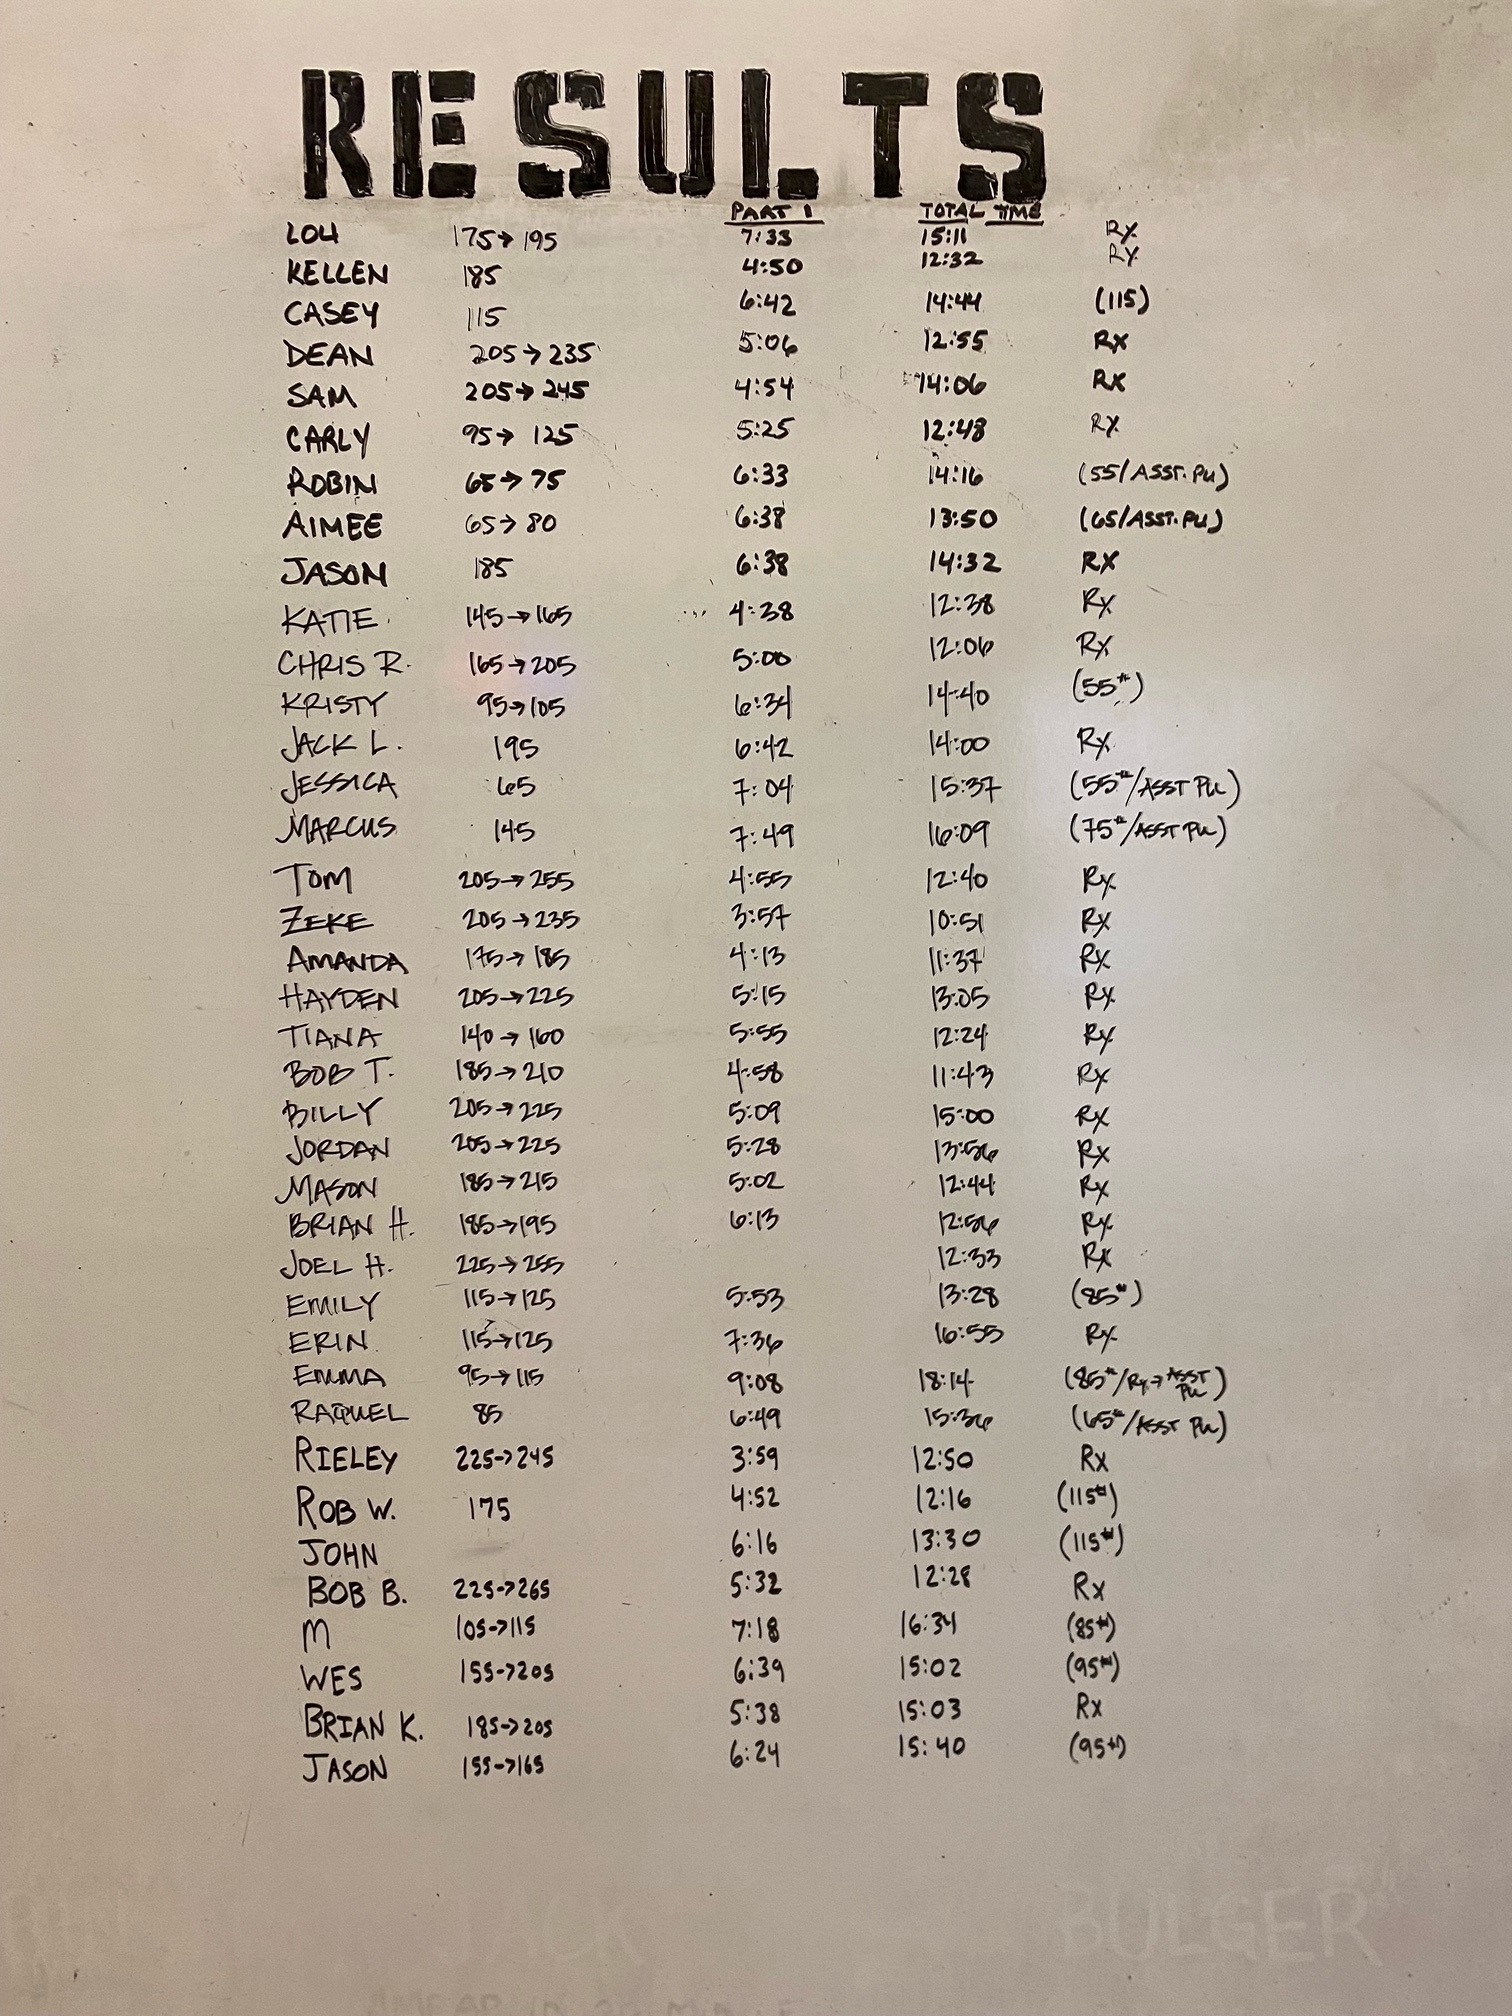 RESULTS
PART 1 TOTAL TIME
LOU 175→195 7:33 15:11 Rx
KELLEN 185 4:50 12:32 Rx
CASEY 115 6:42 14:44 (115)
DEAN 205→235 5:06 12:55 RX
SAM 205→245 4:54 14:06 RX
CARLY 95→125 5:25 12:48 RX
ROBIN 65→75 6:33 14:16 (55/ASST. PU)
AIMEE 65→80 6:38 13:50 (65/ASST. PU)
JASON 185 6:38 14:32 RX
KATIE 145→165 4:38 12:38 Rx
CHRIS R. 165→205 5:00 12:06 Rx
KRISTY 95→105 6:34 14:40 (55#)
JACK L. 195 6:42 14:00 Rx
JESSICA 65 7:04 15:37 (55#/ASST PU)
MARCUS 145 7:49 16:09 (75#/ASST PU)
TOM 205→255 4:55 12:40 Rx
ZEKE 205→235 3:57 10:51 Rx
AMANDA 175→185 4:13 11:37 Rx
HAYDEN 205→225 5:15 13:05 Rx
TIANA 140→160 5:55 12:24 Rx
BOB T. 185→210 4:58 11:43 Rx
BILLY 205→225 5:09 15:00 Rx
JORDAN 205→225 5:28 13:56 Rx
MASON 185→215 5:02 12:44 Rx
BRIAN H. 185→195 6:13 12:56 Rx
JOEL H. 225→255 12:33 Rx
EMILY 115→125 5:53 13:28 (85#)
ERIN 115→125 7:36 16:55 Rx
EMMA 95→115 9:08 18:14 (85#/Rx→ASST PU)
RAQUEL 85 6:49 15:36 (65#/ASST PU)
RIELEY 225→245 3:59 12:50 Rx
ROB W. 175 4:52 12:16 (115#)
JOHN 6:16 13:30 (115#)
BOB B. 225→265 5:32 12:28 Rx
M 105→115 7:18 16:34 (85#)
WES 155→205 6:39 15:02 (95#)
BRIAN K. 185→205 5:38 15:03 Rx
JASON 155→165 6:24 15:40 (95#)
JACK BULGER